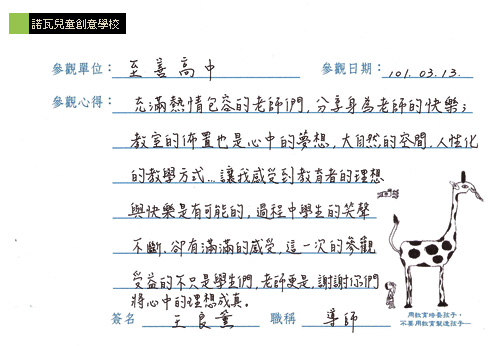 諾瓦兒童創意學校
參觀單位： 至善高中 參觀日期： 101.03.13.
參觀心得： 充滿熱情包容的老師們，分享身為老師的快樂；
教室的佈置也是心中的夢想，大自然的空間，人性化
的教學方式…讓我感受到教育者的理想
與快樂是有可能的，過程中學生的笑聲
不斷，卻有滿滿的感受，這一次的參觀
受益的不只是學生們，老師更是，謝謝你們
將心中的理想成真。
簽名 王良薰 職稱 導師
用教育培養孩子，
不要用教育製造孩子